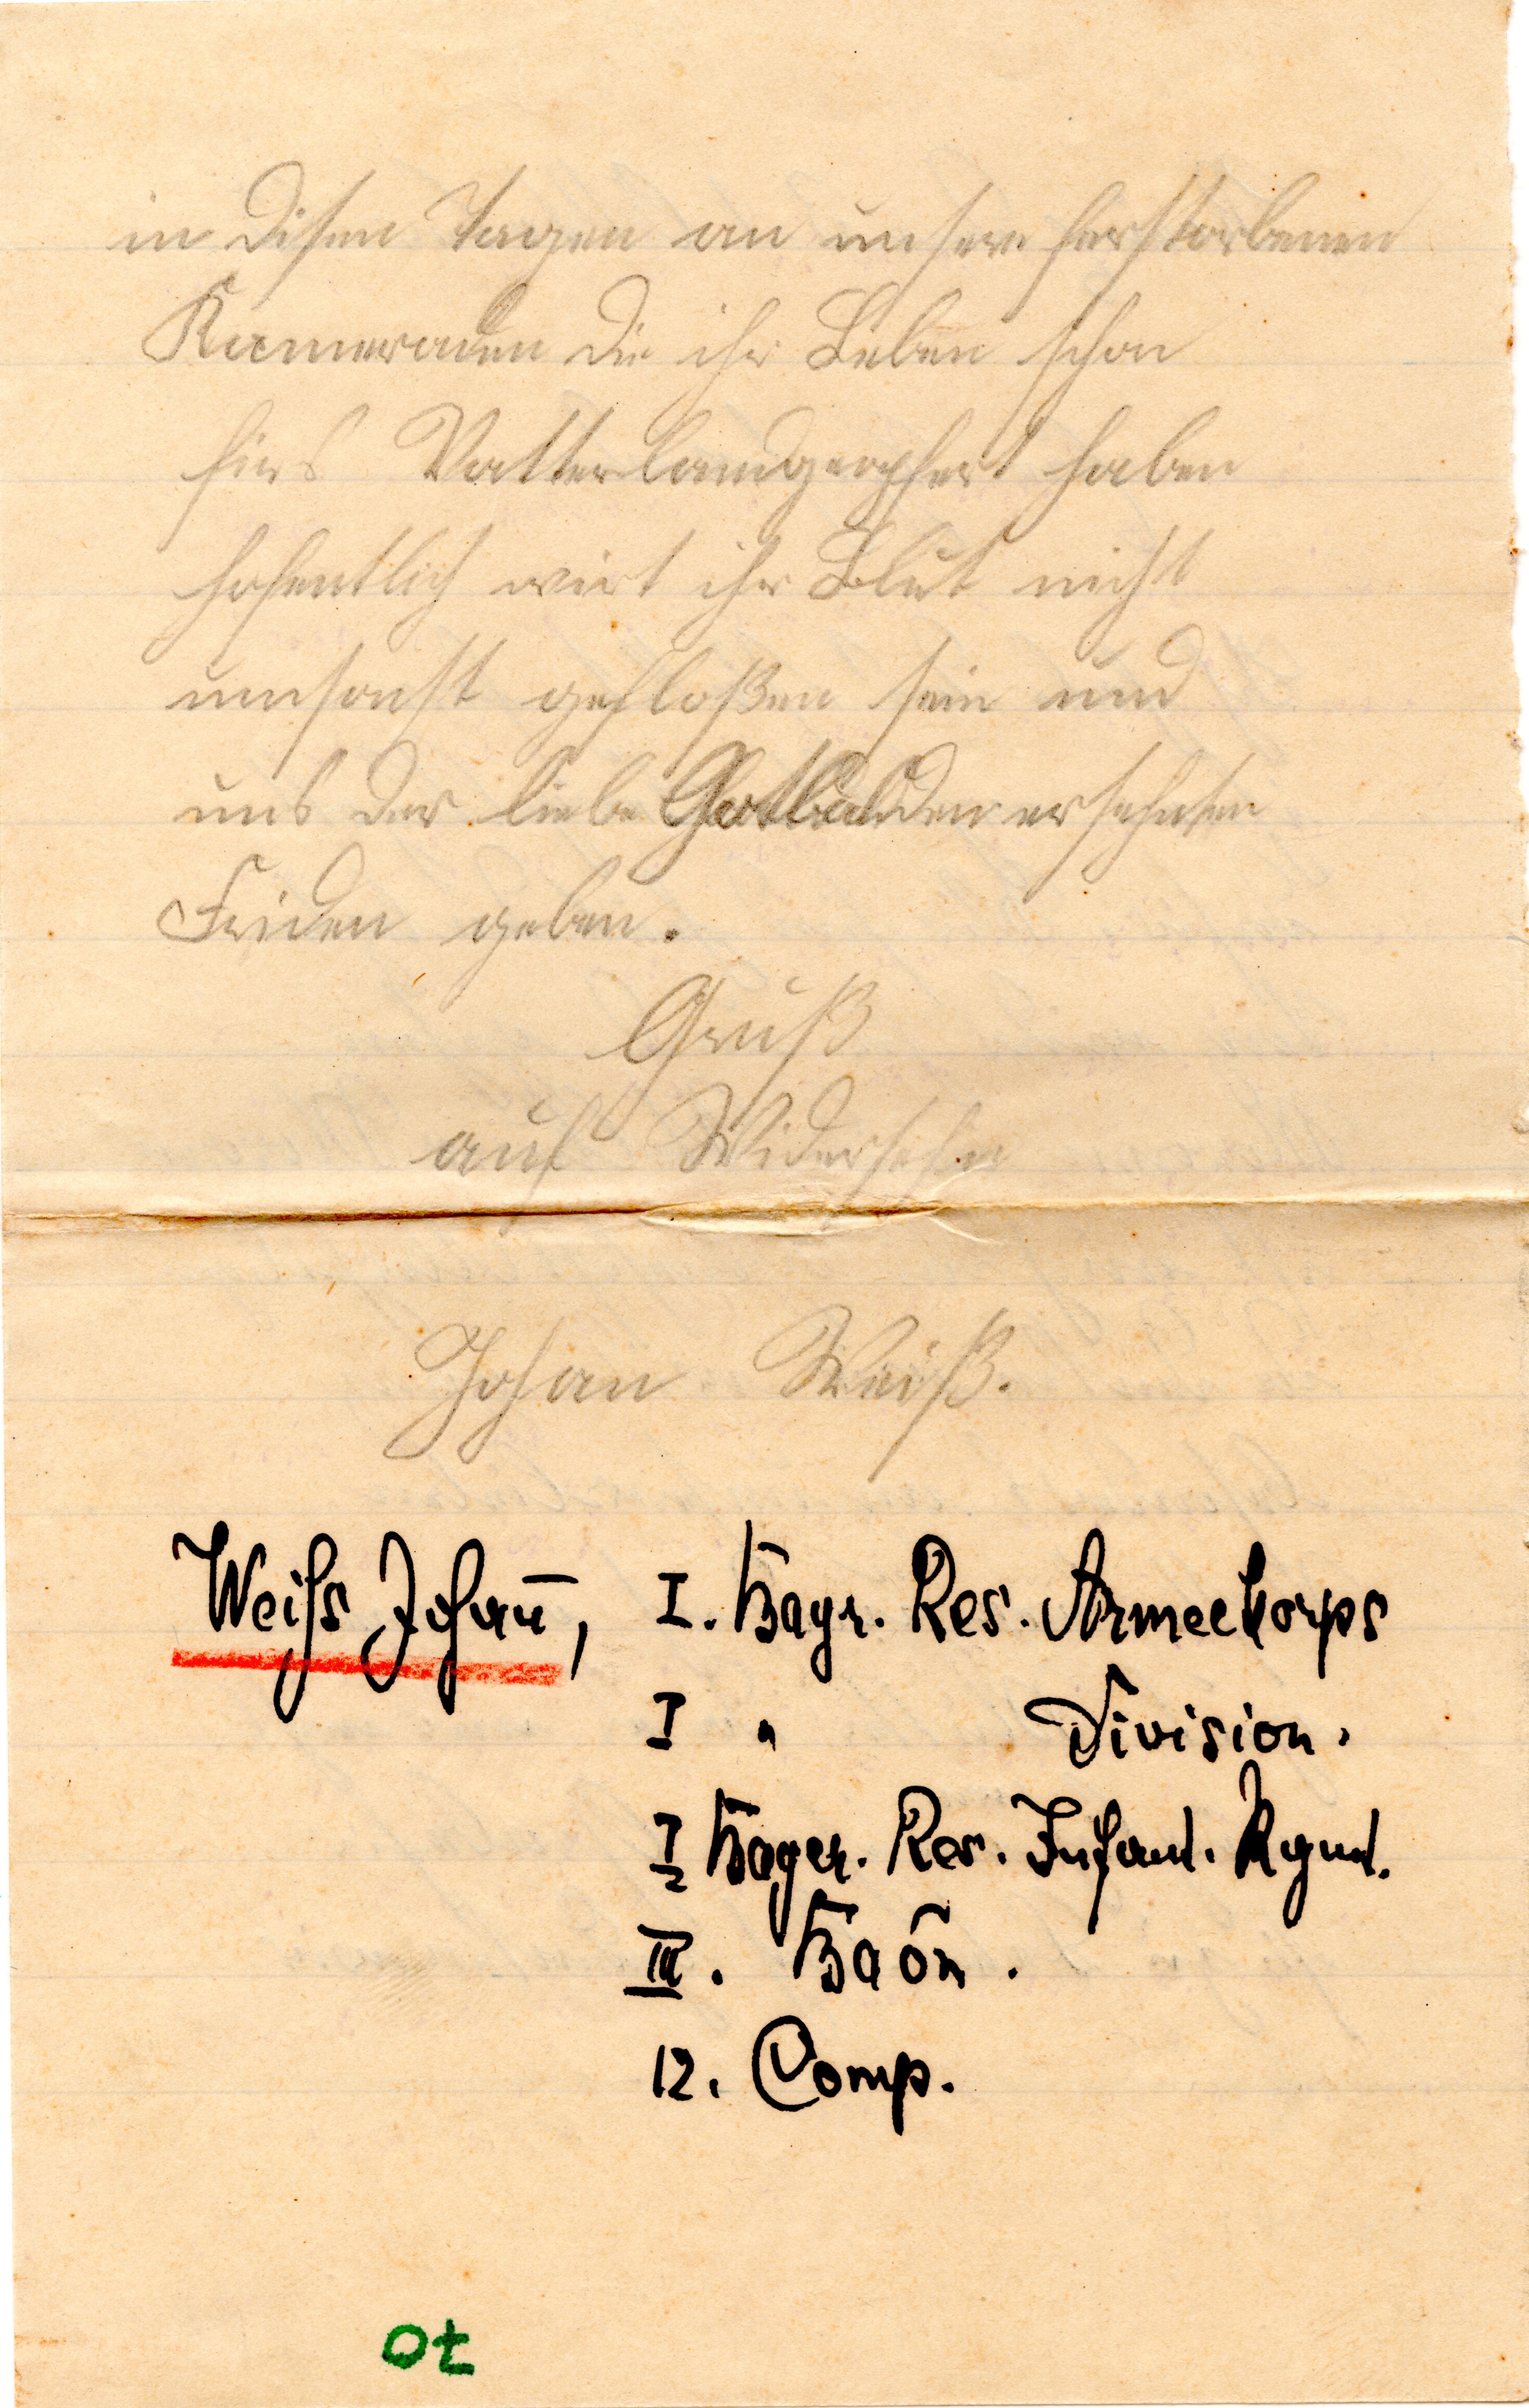 in disen Tagen an unsere ferstorbenen
Kameraden die ihr Leben schon
firs Vatterlandgeopfert haben
hofentlich wirt ihr Blut nicht
umsonst gefloßen sein und
uns der liebe Gott bald den ersehnten
Friden geben.
Gruß
auf Widersehn
Johan Weiß.
Weiss Johan̅, I. Bayr. Res. Armeekorps
I " Division.
I Bayer. Res. Infant. Rgmt.
III. Baōn.
12. Comp.